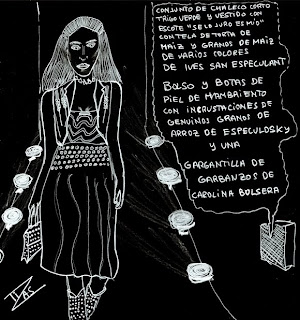 CONJUNTO DE CHALECO CORTO
TRIGO VERDE Y VESTIDO CON
ESCOTE "SE LO JURO ES MÍO"
CON TELA DE TORTA DE
MAÍZ Y GRANOS DE MAÍZ
DE VARIOS COLORES
DE IVES SAN ESPECULANT
BOLSO Y BOTAS DE
PIEL DE HAMBRIENTO
CON INCRUSTACIONES DE
GENUINOS GRANOS DE
ARROZ DE ESPECULOSKY
Y UNA
GARGANTILLA DE
GARBANZOS DE
CAROLINA BOLSERA